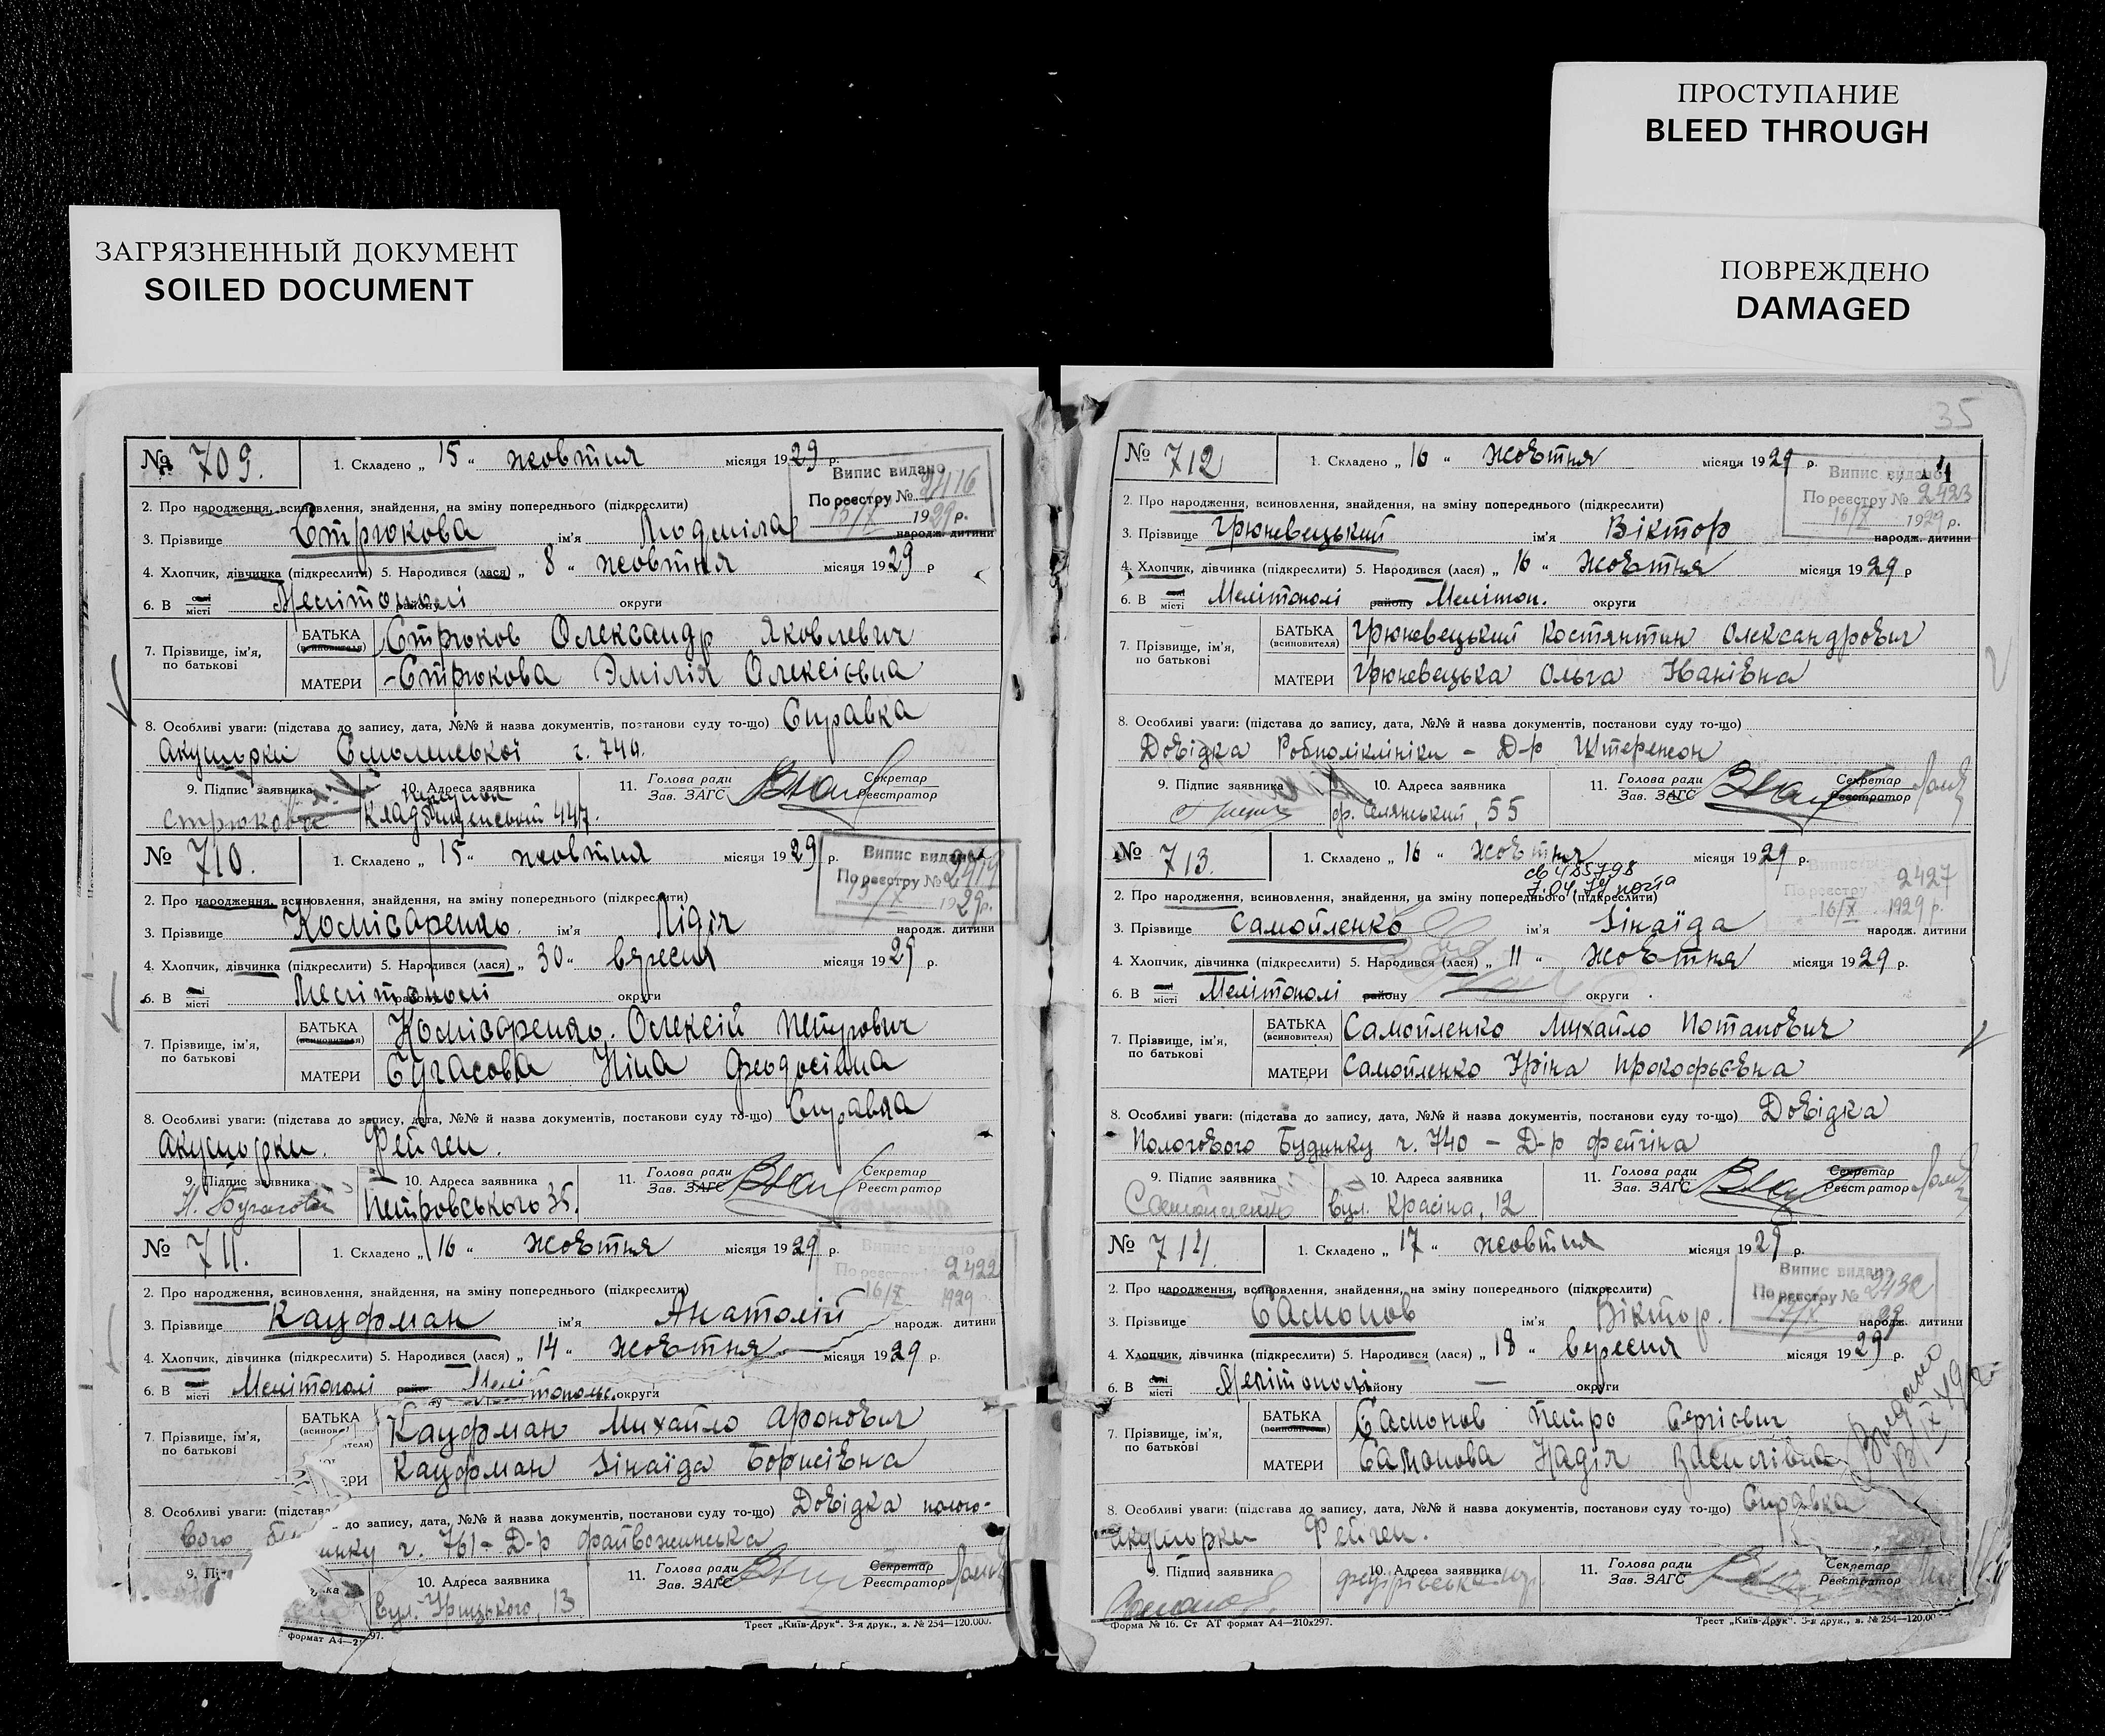 ПРОСТУПАНИЕ
BLEED THROUGH
ЗАГРЯЗНЕННЫЙ ДОКУМЕНТ
SOILED DOCUMENT
ПОВРЕЖДЕНО
DAMAGED
№ 709. 1. Складено „ 15 “ жовтня місяця 1929 р.
Випис видано
По реєстру № 2416
15/X 1929 р.
2. Про народження, всиновлення, знайдення, на зміну попереднього (підкреслити)
3. Прізвище Стрюкова ім'я Людміла народж. дитини
4. Хлопчик, дівчинка (підкреслити) 5. Народився (лася) „ 8 “ жовтня місяця 1929 р
6. В селі місті Мелітополі району округи
7. Прізвище, ім'я, по батькові
БАТЬКА (всиновителя) Стрюков Олександр Яковлевич
МАТЕРИ Стрюкова Эмілія Олексієвна
8. Особливі уваги: (підстава до запису, дата, №№ й назва документів, постанови суду то-що) Справка
акушорки Смоленської ч. 740.
9. Підпис заявника 10. Адреса заявника 11. Голова ради Зав. ЗАГС Секретар Реєстратор
447.
№ 710. 1. Складено „ 15 “ жовтня місяця 1929 р.
Випис видано
По реєстру № 2419
15/X 1929 р.
2. Про народження, всиновлення, знайдення, на зміну попереднього (підкреслити)
3. Прізвище Комісаренко ім'я Лідія народж. дитини
4. Хлопчик, дівчинка (підкреслити) 5. Народився (лася) „ 30 “ вересня місяця 1929 р.
6. В селі місті Мелітополі району округи
7. Прізвище, ім'я, по батькові
БАТЬКА (всиновителя) Комісаренко Олексій Петрович
МАТЕРИ Бугасова Ніна Феодосіівна
8. Особливі уваги: (підстава до запису, дата, №№ й назва документів, постанови суду то-що) Справка
акушорки. Фейген.
9. Підпис заявника 10. Адреса заявника 11. Голова ради Зав. ЗАГС Секретар Реєстратор
Петровського 35.
№ 711. 1. Складено „ 16 “ жовтня місяця 1929 р.
Випис видано
По реєстру № 2422
16/X 1929 р.
2. Про народження, всиновлення, знайдення, на зміну попереднього (підкреслити)
3. Прізвище Кауфман ім'я Анатолій народж. дитини
4. Хлопчик, дівчинка (підкреслити) 5. Народився (лася) „ 14 “ жовтня місяця 1929 р.
6. В селі місті Мелітополі району Мелітопольс. округи
7. Прізвище, ім'я, по батькові
БАТЬКА Кауфман Михайло Аронович
Кауфман Зінаїда Борисівна
8. Особливі уваги: (підстава до запису, дата, №№ й назва документів, постанови суду то-що) Довідка полого-
вого будинку ч. 761 – Д-р
10. Адреса заявника 11. Голова ради Зав. ЗАГС Секретар Реєстратор
Вул. Урицького, 13
Трест „Київ-Друк“. З-я друк., в. № 254—120.000.
35
№ 712 1. Складено „ 16 “ жовтня місяця 1929 р.
Випис видано
По реєстру № 2423
16/X 1929 р.
2. Про народження, всиновлення, знайдення, на зміну попереднього (підкреслити)
3. Прізвище Грюневецький ім'я Віктор народж. дитини
4. Хлопчик, дівчинка (підкреслити) 5. Народився (лася) „ 16 “ жовтня місяця 1929 р
6. В селі місті Мелітополі району Мелітоп. округи
7. Прізвище, ім'я, по батькові
БАТЬКА (всиновителя) Грюневецький Костянтин Олександрович
МАТЕРИ Грюневецька Ольга Іванівна
8. Особливі уваги: (підстава до запису, дата, №№ й назва документів, постанови суду то-що)
Довідка Робполіклініки – Д-р Штеренсон
9. Підпис заявника 10. Адреса заявника 11. Голова ради Зав. ЗАГС Секретар Реєстратор
Селянський, 55
№ 713. 1. Складено „ 16 “ жовтня місяця 1929 р.
2427
16/X 1929 р.
2. Про народження, всиновлення, знайдення, на зміну попереднього (підкреслити)
3. Прізвище Самойленко ім'я Зінаїда народж. дитини
4. Хлопчик, дівчинка (підкреслити) 5. Народився (лася) „ 11 “ жовтня місяця 1929 р.
6. В селі місті Мелітополі району — округи
7. Прізвище, ім'я, по батькові
БАТЬКА (всиновителя) Самойленко Михайло Потапович
МАТЕРИ Самойленко Ірина Прокофьєвна
8. Особливі уваги: (підстава до запису, дата, №№ й назва документів, постанови суду то-що) Довідка
Пологового Будинку ч. 740 – Д-р Фейгіна
9. Підпис заявника 10. Адреса заявника 11. Голова ради Зав. ЗАГС Секретар Реєстратор
Самойленко вул. Красіна, 12
№ 714. 1. Складено „ 17 “ жовтня місяця 1929 р.
Випис видано
По реєстру № 2432
17/X 29
2. Про народження, всиновлення, знайдення, на зміну попереднього (підкреслити)
3. Прізвище Самонов ім'я Віктор. народж. дитини
4. Хлопчик, дівчинка (підкреслити) 5. Народився (лася) „ 18 “ вересня місяця 1929 р.
6. В селі місті Мелітополі району — округи
7. Прізвище, ім'я, по батькові
БАТЬКА (всиновителя) Самонов Петро Сергієвич
МАТЕРИ Самонова Надія Василівна
8. Особливі уваги: (підстава до запису, дата, №№ й назва документів, постанови суду то-що) Справка
акушорки Фейген.
9. Підпис заявника 10. Адреса заявника 11. Голова ради Зав. ЗАГС Секретар Реєстратор
Форма № 16. Ст АТ формат А4—210х297.
Трест „Київ-Друк“. З-я друк., в. № 254—120.00